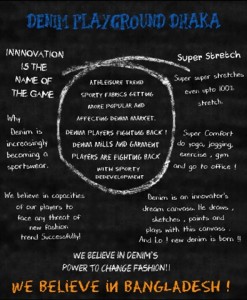 DENIM PLAYGROUND DHAKA
INNNOVATION
IS THE
NAME OF
THE GAME
Why
Denim is
increasingly
becoming a
sportswear.
ATHLEISURE TREND
SPORTY FABRICS GETTING
MORE POPULAR AND
AFFECTING DENIM MARKET.
DENIM PLAYERS FIGHTING BACK !
DENIM MILLS AND GARMENT
PLAYERS ARE FIGHTING BACK
WITH SPORTY
REDEVELOPMENT
Super Stretch
Super super stretches
even upto 100%
stretch.
Super Comfort
do yoga, jogging,
exercise , gym
and go to office !
We believe in capacities
of our players to
face any threat of
new fashion
trend Successfully!
Denim is an innovator's
dream canvass. He draws ,
sketches , paints and
plays with this canvass .
And Lo ! new denim is born !!
WE BELIEVE IN DENIM'S
POWER TO CHANGE FASHION!!
WE BELIEVE IN BANGLADESH !